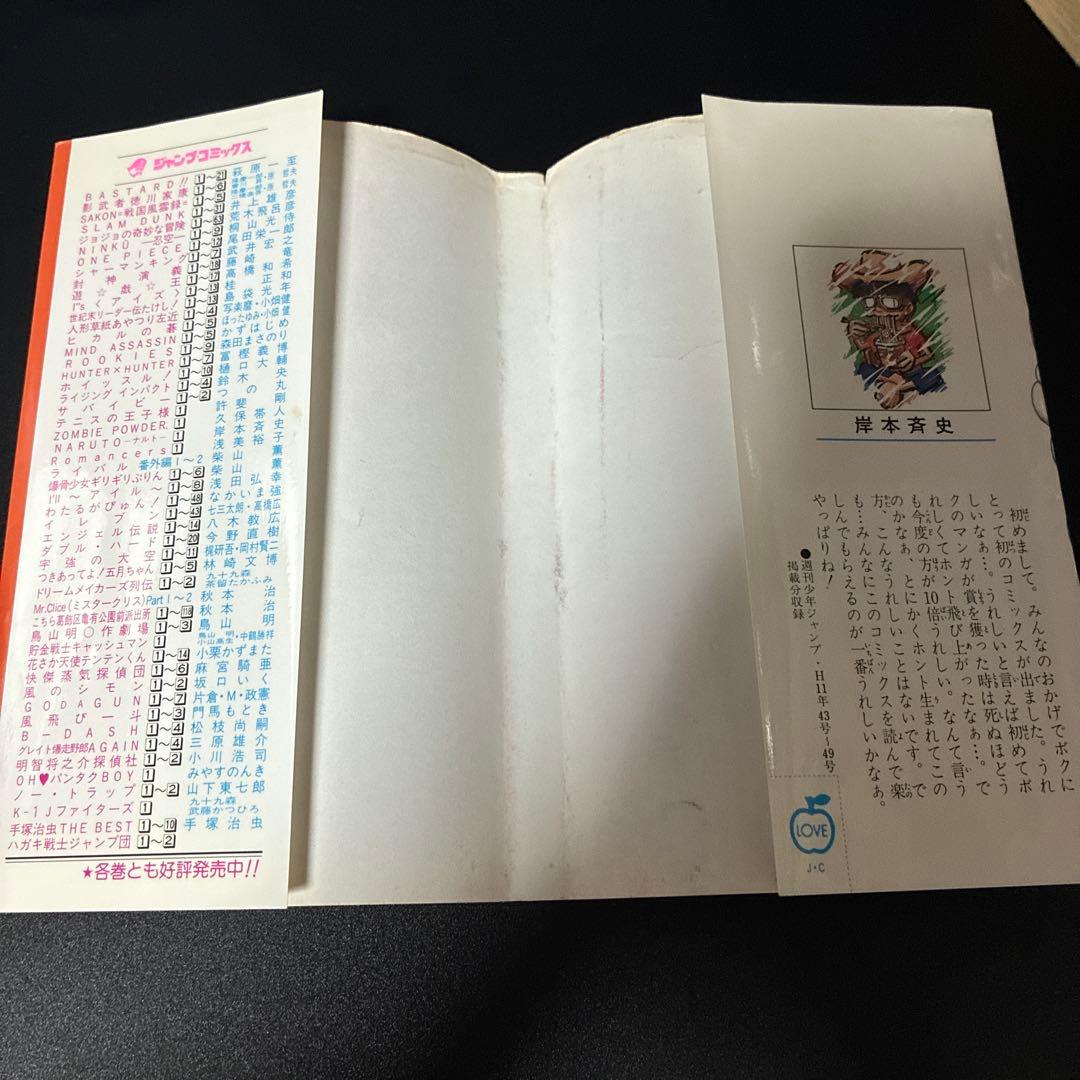 ジャンプ・コミックス
BASTARD!! 1〜21 萩原一至
影武者徳川家康 1〜6
SAKON=戦国風雲録= 1〜5
SLAM DUNK 1〜31 井上雄彦
ジョジョの奇妙な冒険 1〜63 荒木飛呂彦
NINKU ―忍空― 1〜9 桐山光侍
ONE PIECE 1〜12 尾田栄一郎
シャーマンキング 1〜7 武井宏之
封神演義 1〜18 藤崎竜
遊☆戯☆王 1〜17 高橋和希
I"s〈アイズ〉 1〜13 桂正和
世紀末リーダー伝たけし! 1〜13 島袋光年
人形草紙あやつり左近 1〜4 写楽麿・小畑健
ヒカルの碁 1〜5 ほったゆみ・小畑健
MIND ASSASSIN 1〜5 かずはじめ
ROOKIES 1〜9 森田まさのり
HUNTER×HUNTER 1〜7 冨樫義博
ホイッスル! 1〜10 樋口大輔
ライジング インパクト 1〜4 鈴木央
サバイビー 1〜2 つの丸
テニスの王子様 1 許斐剛
ZOMBIE POWDER. 1 久保帯人
NARUTO―ナルト― 1 岸本斉史
Romancers 1 浅美裕子
ライバル 番外編1〜2 柴山薫
爆骨少女ギリギリぷりん 1〜6 柴山薫
I'll 〜アイル〜 1〜8 浅田弘幸
わたるがぴゅん! 1〜48 なかいま強
イレブン 1〜43 七三太朗・高橋広
エンジェル伝説 1〜14 八木教広
ダブル・ハード 1〜20 今野直樹
宇強の大空 1〜11 梶研吾・岡村賢二
つきあってよ!五月ちゃん 1〜5 林崎文博
ドリームメイカーズ列伝 1〜2 九十九森 茶留たかふみ
Mr.Clice(ミスタークリス)Part 1〜2 秋本治
こちら葛飾区亀有公園前派出所 1〜118 秋本治
鳥山明○作劇場 1〜3 鳥山明
貯金戦士キャッシュマン 1 鳥山明・中鶴勝祥 小山高生
花さか天使テンテンくん 1〜14 小栗かずまた
快傑蒸気探偵団 1〜6 麻宮騎亜
風のシモン 1〜2 坂口いく
GODAGUN 1〜7 片倉・M・政憲
風飛び一斗 1〜3 門馬もとき
B-DASH 1〜4 松枝尚嗣
グレイト爆走野郎AGAIN 1〜4 三原雄介
明智将之介探偵社 1〜2 小川浩司
OH♥バンタクBOY 1 みやすのんき
ノー・トラップ 1〜2 山下東七郎
K-1 Jファイターズ 1 九十九森 武藤かつひろ
手塚治虫THE BEST 1〜10 手塚治虫
ハガキ戦士ジャンプ団 1〜2
★各巻とも好評発売中!!
岸本斉史
初めまして。みんなのおかげでボクに
とって初のコミックスが出ました。うれ
しいなぁ…。うれしいと言えば初めてボ
クのマンガが賞を獲った時は死ぬほどう
れしくてホント飛び上がったなぁ…。で
も今度の方が10倍うれしい。なんて言う
のかなぁ、とにかくホント生まれてこの
方、こんなうれしいことはないです。で
も…みんなにこのコミックスを読んで楽
しんでもらえるのが一番うれしいかなぁ。
やっぱりね!
●週刊少年ジャンプ・H11年43号〜49号
掲載分収録
LOVE
J・C